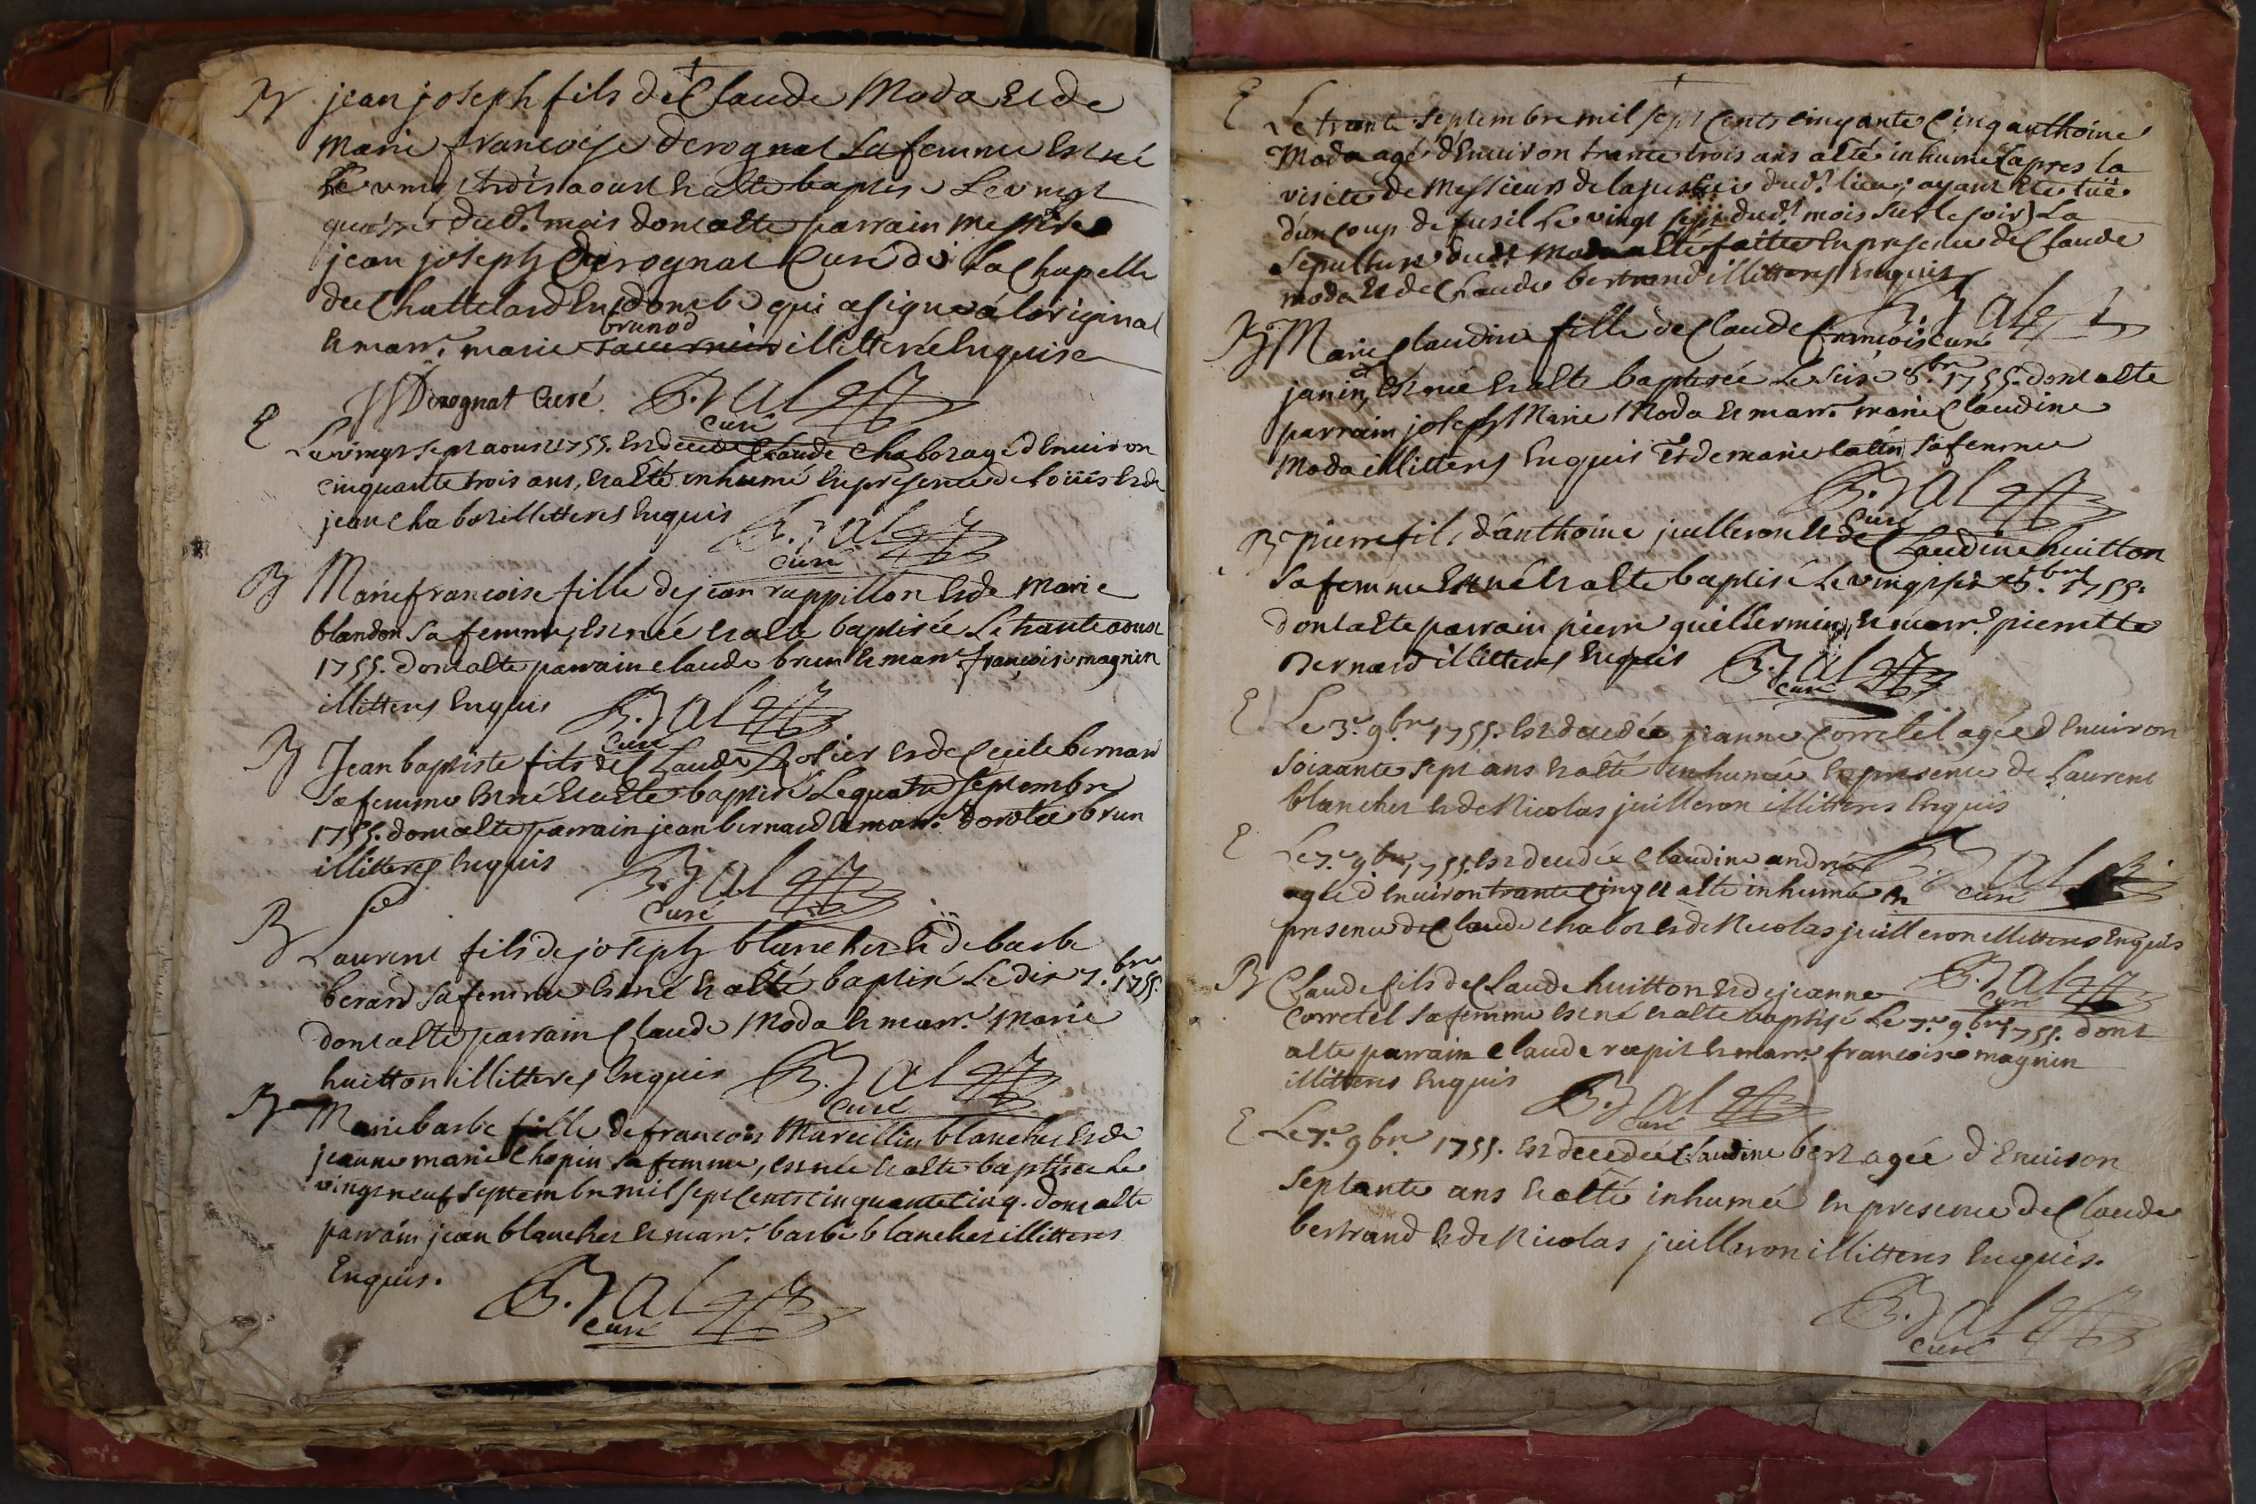 B jean joseph fils de Claude Moda et de
Marie francoise derognat sa femme est né
Le vingt trois aoust et a esté baptisé Le vingt
quatre dud.t mois dont a esté parrain messire
jean joseph Derognat Curé de La Chapelle
du Chattelard En dombe qui a signé à Loriginal
brunod
et marr.e marie illitteré Enquise
JJ Derognat Curé. B. Jal
curé
E Le vingt sept aoust 1755. est decedé Claude Chabot agé d'Environ
cinquante trois ans, et a esté inhumé En presence de Loüis et de
jean Chabot illitteres Enquis B. Jal
curé
B Marie francoise fille de jean rappillon et de Marie
blandon sa femme, est née et a esté baptisée Le trante aoust
1755. dont a esté parrain claude brun et marr.e françoise magnin
illitteres Enquis B. Jal
curé
B Jean baptiste fils de Claude et de Cecile bernard
sa femme est né et a esté baptisé Le quatre septembre
1755. dont a esté parrain jean bernard et marr.e dorotée brun
illitteres Enquis B. Jal
Curé
B Laurent fils de joseph blanchet et de barbe
berard sa femme est né et a esté baptisé Le dix 7.bre 1755.
dont a esté parrain Claude Moda et marr.e Marie
huitton illitteres Enquis B. Jal
curé
B Marie barbe fille de francois Marcellin blanchet et de
jeanne marie Chapin sa femme, est née et a esté baptisée Le
vingt neuf septembre mil sept Cents cinquante cinq. dont a esté
parrain jean blanchet et marr.e barbe blanchet illitteres
Enquis. B. Jal
curé
E Le trante septembre mil sept Cents cinquante Cinq anthoine
Moda agé d'Environ trante trois ans a esté inhumé (apres la
visitte de Messieurs de la justice dud.t lieu; ayant Ete tüé
d'un Coup de fusil Le vingt dud.t mois sur le soir) La
sepulture dud.t Moda a esté faitte En presence de Claude
moda et de Claude bertrand illitteres Enquis
B. Jal
curé
B Marie Claudine fille de Claude François
janin, est née et a esté baptisée Le Sixe 8.bre 1755. dont a esté
parrain joseph Marie Moda et marr.e marie Claudine
Moda illitteres Enquis Et de marie catin sa femme
B. Jal
curé
B pierre fils d'anthoine juilleron et de Claudine huitton
sa femme est né et a esté baptisé Le vingt six 8.bre 1755.
dont a esté parrain pierre guillermin, et marr.e pierrette
Bernard illitteres Enquis B. Jal
curé
E Le 3.e 9.bre 1755. est decedée jeanne Corretel agée d'Environ
soixante sept ans et a esté inhumée En presence de Laurent
blanchet et de Nicolas juilleron illitteres Enquis
B. Jal
curé
E Le 7.e 9.bre 1755. est decedée Claudine andréa
agée d'Environ trante Cinq et a esté inhumée En
presence de Claude chabot et de Nicolas juilleron illitteres Enquis
B. Jal
curé
B Claude fils de Claude huitton et de jeanne
Corretel sa femme est né et a esté baptisé Le 7.e 9.bre 1755. dont
a esté parrain Claude recpit et marr.e francoise magnin
illitteres Enquis B. Jal
curé
E Le 7.e 9bre 1755. est decedée Claudine bert agée d'Environ
septante ans et a esté inhumée En presence de Claude
bertrand et de Nicolas juilleron illitteres Enquis.
B. Jal
curé